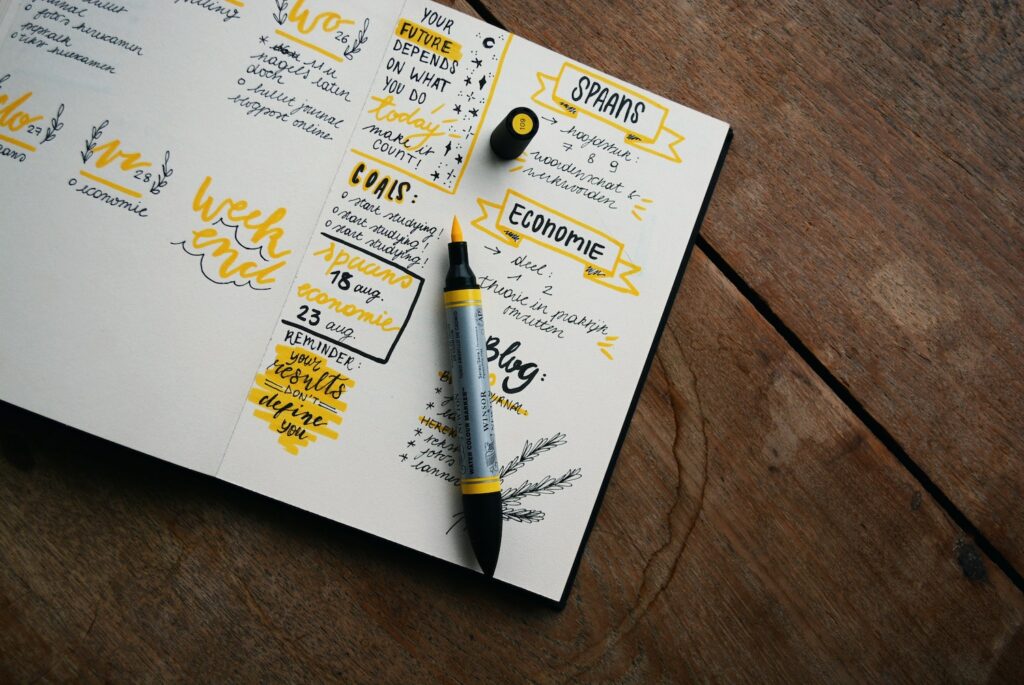 bullet
journal
o foto's herexamen
o tekst herexamen
do
27
vr
28
o economie
Week
end
wo
26
nagels laten
doen
o bullet journal
blogpost online
YOUR
FUTURE
DEPENDS
ON WHAT
YOU DO
today
make it
COUNT!
GOALS:
o start studying!
o start studying!
o start studying!
spaans
18 aug.
economie
23 aug.
REMINDER:
your
results
DON'T
define
you
109
SPAANS
→ hoofdstuk:
7 8 9
woordenschat &
werkwoorden
ECONOMIE
→ deel:
1 2
theorie in praktijk
omzetten
Blog:
WATER COLOUR MARKER
WINSOR